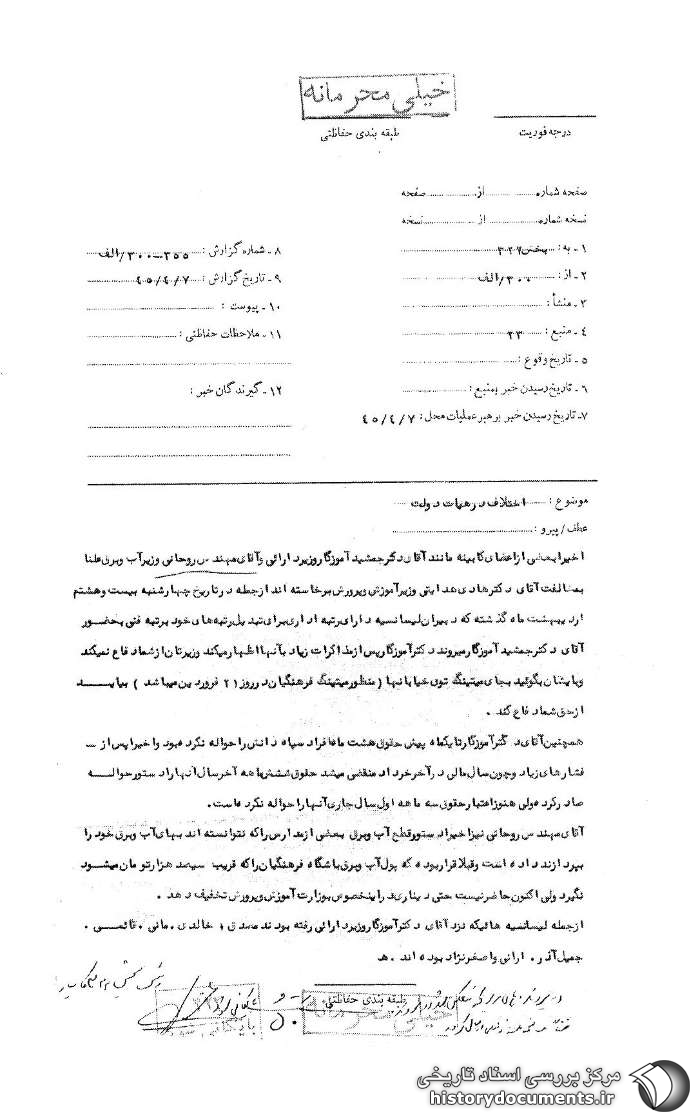 خیلی محرمانه
درجه فوریت
طبقه بندی حفاظتی
صفحه شماره از صفحه
نسخه شماره از نسخه
۱ - به : بخش ۳۲۷
۲ - از : ۳۰۰/الف
۳ - منشأ :
۴ - منبع : ۲۳
۵ - تاریخ وقوع :
۶ - تاریخ رسیدن خبر بمنبع :
۷ - تاریخ رسیدن خبر برهبر عملیات محل : ۴۵/۴/۷
۸ - شماره گزارش : ۳۰۰-۳۵۵/الف
۹ - تاریخ گزارش : ۴۵/۴/۷
۱۰ - پیوست :
۱۱ - ملاحظات حفاظتی :
۱۲ - گیرندگان خبر :
موضوع : اختلاف در هیات دولت
عطف/پیرو :
اخیرا بعضی از اعضای کابینه مانند آقای دکتر جمشید آموزگار وزیر دارائی و آقای مهندس روحانی وزیر آب و برق علنا
بمخالفت آقای دکتر هادی هدایتی وزیر آموزش و پرورش برخاسته اند از جمله در تاریخ چهارشنبه بیست و هشتم
اردیبهشت ماه گذشته که دبیران لیسانسیه دارای رتبه اداری برای تبدیل رتبه های خود برتبه فنی بحضور
آقای دکتر جمشید آموزگار میروند دکتر آموزگار پس از مذاکرات زیاد بآنها اظهار میکند وزیرتان از شما دفاع نمیکند
و بایشان بگوئید بجای میتینگ توی خیابانها ( منظور میتینگ فرهنگیان در روز ۲۱ فروردین میباشد ) بیایــــد
از حق شما دفاع کند .
همچنین آقای دکتر آموزگار تا یکماه پیش حقوق هشت ماهه افراد سپاه دانش را حواله نکرده بود و اخیرا پس از
فشارهای زیاد و چون سال مالی در آخر خرداد منقضی میشد حقوق شش ماهه آخر سال آنها را دستور حوالــــه
صادر کرده ولی هنوز اعتبار حقوق سه ماهه اول سال جاری آنها را حواله نکرده است.
آقای مهندس روحانی نیز اخیرا دستور قطع آب و برق بعضی از مدارس را که نتوانسته اند بهای آب و برق خود را
بپردازند داده است و قبلا قرار بوده که پول آب و برق باشگاه فرهنگیان را که قریب سیصد هزار تومان میشود
نگیرد ولی اکنون حاضر نیست حتی دیناری در اینخصوص بوزارت آموزش و پرورش تخفیف دهد .
از جمله لیسانسیه هائیکه نزد آقای دکتر آموزگار وزیر دارائی رفته بودند مصدق ، خالدی ، مانی ، قائمــی ،
جمیل آذر ، ارانی و اصغر نژاد بوده اند . هـ
طبقه بندی حفاظتی
خیلی محرمانه
بایگانی شود
مرکز بررسی اسناد تاریخی
historydocuments.ir